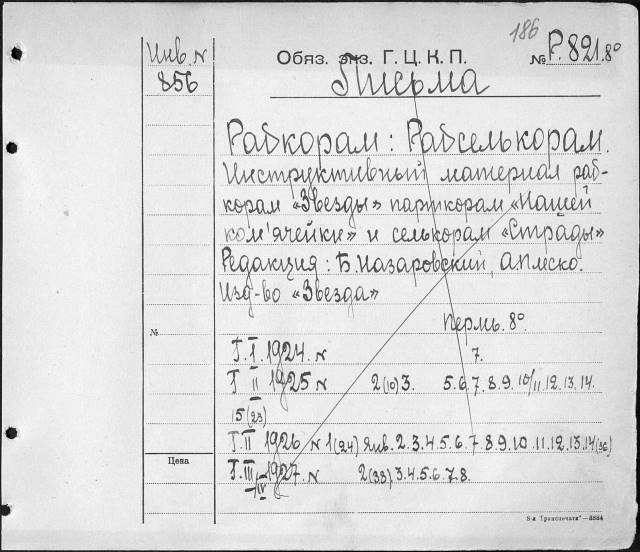 186
Инв. N
856
Обяз. экз. Г. Ц. К. П.
№ Р.821.8°
Письма
Рабкорам: Рабселькорам.
Инструктивный материал раб-
корам «Звезды» парткорам «Нашей
ком'ячейки» и селькорам «Страды»
Редакция: Б. Назаровский, А. Плеско.
Изд-во «Звезда»
Пермь. 8°.
№
Г. I. 1924. N 7.
Г II 1925 N 2(10) 3. 5. 6. 7. 8. 9. 10/11. 12. 13. 14.
15(23)
Г. II 1926 N 1(24) Янв. 2. 3. 4. 5. 6. 7. 8. 9. 10. 11. 12. 13. 14(36)
Цена
Г. III-IV 1927. N 2(38) 3. 4. 5. 6. 7. 8.
"—3884